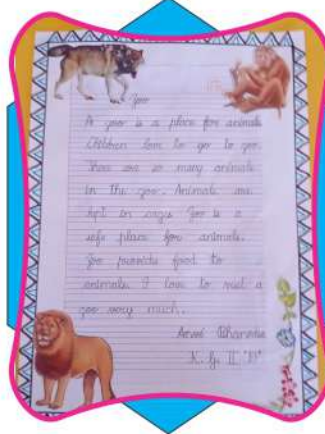 Zoo
A zoo is a place for animals
Children love to go to zoo.
There are so many animals
in the zoo. Animals are
kept in cages Zoo is a
safe place for animals.
Zoo provide food to
animals. I love to visit a
zoo very much.
K. G. II "B"